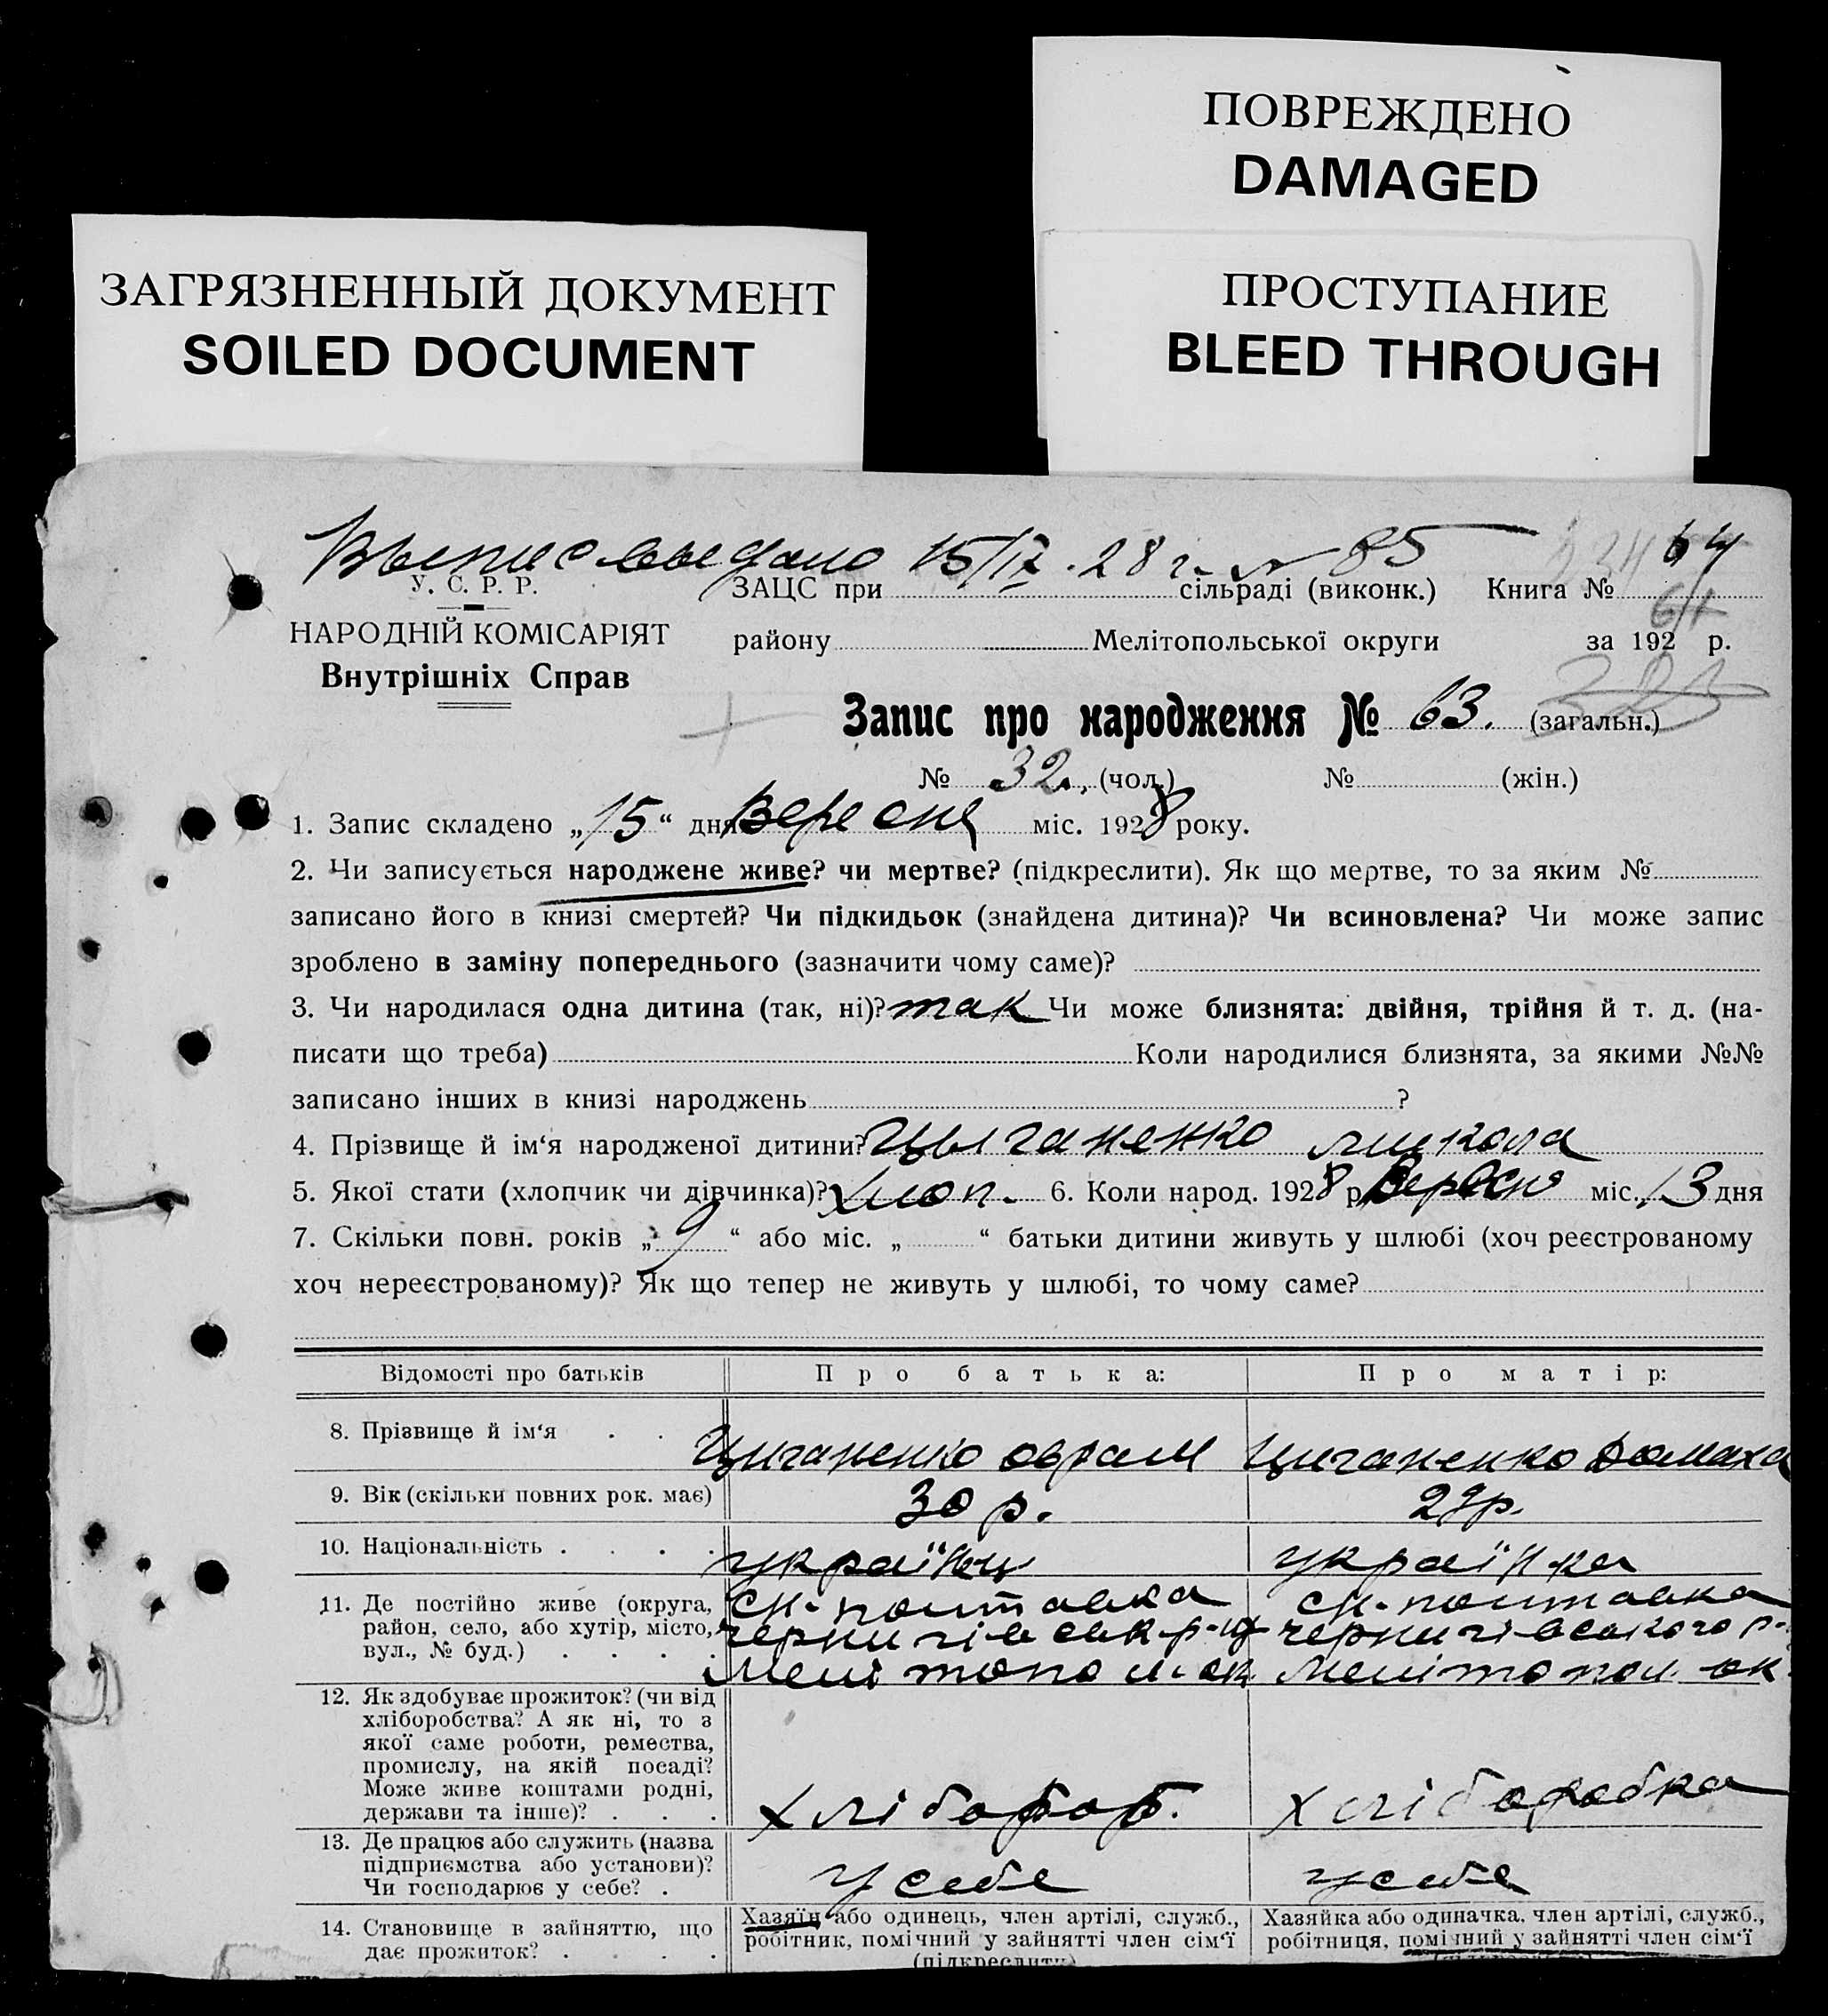 ПОВРЕЖДЕНО
DAMAGED
ЗАГРЯЗНЕННЫЙ ДОКУМЕНТ
SOILED DOCUMENT
ПРОСТУПАНИЕ
BLEED THROUGH
Выпись выдано 15/IX.28 г. № 85 64
У. С. Р. Р.
ЗАЦС при сільраді (виконк.) Книга №
НАРОДНІЙ КОМІСАРІЯТ
Внутрішніх Справ
району Мелітопольської округи за 192 р.
Запис про народження № 63. (загальн.)
№ 32. (чол.) № (жін.)
1. Запис складено „15“ дня Вересня міс. 1928 року.
2. Чи записується народжене живе? чи мертве? (підкреслити). Як що мертве, то за яким №
записано його в книзі смертей? Чи підкидьок (знайдена дитина)? Чи всиновлена? Чи може запис
зроблено в заміну попереднього (зазначити чому саме)?
3. Чи народилася одна дитина (так, ні)? так Чи може близнята: двійня, трійня й т. д. (на-
писати що треба) Коли народилися близнята, за якими №№
записано інших в книзі народжень ?
4. Прізвище й ім‘я народженої дитини? Цыганенко Микола
5. Якої стати (хлопчик чи дівчинка)? хлоп. 6. Коли народ. 1928 р. Вересня міс. 13 дня
7. Скільки повн. років „9“ або міс. „ “ батьки дитини живуть у шлюбі (хоч реєстрованому
хоч нереєстрованому)? Як що тепер не живуть у шлюбі, то чому саме?
Відомості про батьків Про батька: Про матір:
8. Прізвище й ім‘я . . Циганенко Оврам Циганенко Домаха
9. Вік (скільки повних рок. має) 30 р. 29 р.
10. Національність . . . . українц українка
11. Де постійно живе (округа, сн-полтавка сн-полтавка
район, село, або хутір, місто, чернигівськ р-ну чернигівського р-
вул., № буд.) . . . . Мелітопол. ок Мелітопол. ок
12. Як здобуває прожиток? (чи від
хліборобства? А як ні, то з
якої саме роботи, ремества,
промислу, на якій посаді?
Може живе коштами родні,
держави та інше)? . . . хлібороб. хліборобка
13. Де працює або служить (назва
підприємства або установи)?
Чи господарює у себе? . У себе у себе
14. Становище в зайняттю, що Хазяїн або одинець, член артілі, служб., Хазяйка або одиначка, член артілі, служб.,
дає прожиток? . . . . робітник, помічний у зайнятті член сім‘ї робітниця, помічний у зайнятті член сім‘ї
(підкреслити)